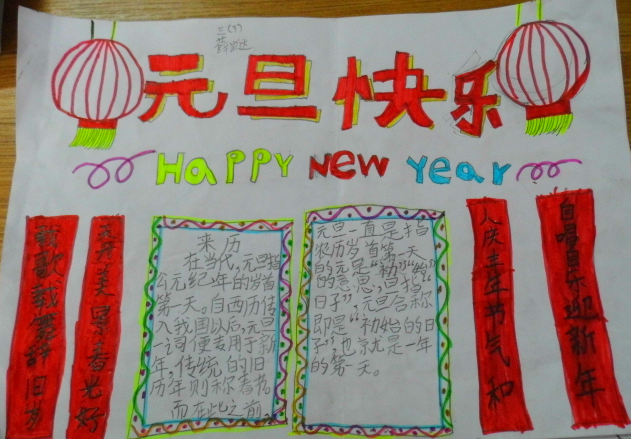 三(1)
元旦快乐
HAPPY NEW YeaR
载歌载舞辞旧岁
美景春光好
来历
在当代,元旦指
公元纪年的岁首
第一天。自西历传
入我国以后,元旦
一词便专用于新
年,传统的旧
历年则称春节。
而在此之前,
元旦一直是指
农历岁首第一天
的元是“初”“始”
的意思,旦指“
日子”,元旦合称
即是“初始的日
子”,也就是一年
的第一天。
人庆丰年节气和
自唱自乐迎新年